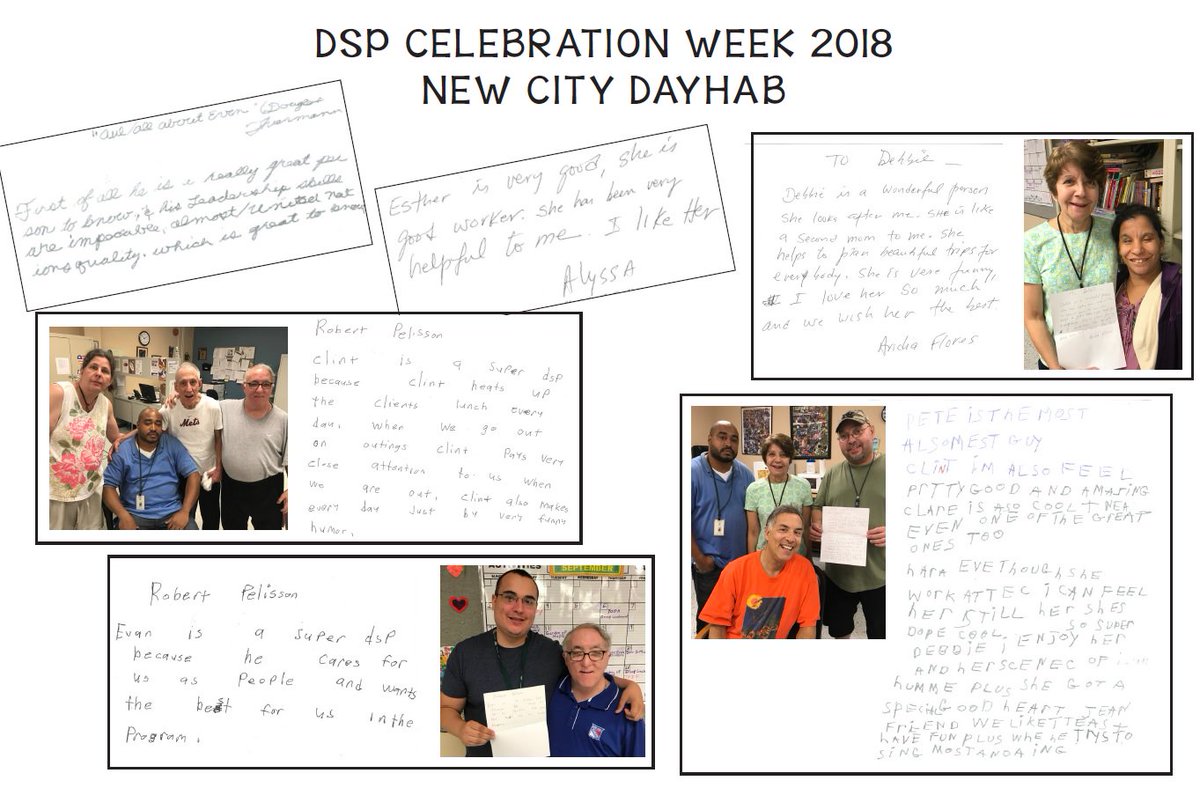 DSP CELEBRATION WEEK 2018
NEW CITY DAYHAB
First of all he is a really great per
son to know, & his Leadership skills
are impocable, almost/United Nat
ions quality. which is great to know
Esther is very good, she is
good worker. She has been very
helpful to me. I like Her
Alyssa
TO Debbie —
Debbie is a wonderful person
She looks after me. She is like
a second mom to me. She
helps to plan beautiful trips for
everybody. She is very funny,
I love her so much
and we wish her the best.
Andia Flores
Robert Pelisson
clint is a super dsp
because clint heats up
the clients lunch every
day. when we go out
on outings clint pays very
close attention to us when
we are out, clint also makes
every day just by very funny
humor.
Mets
PETE IS THE MOST
ALSOMEST GUY
CLINT IM ALSO FEEL
PRTTY GOOD AND AMAZING
CLARE IS ALSO COOL +
EVEN ONE OF THE GREAT
ONES TOO
HARA EVETHOUGH SHE
WORK AT TEC I CAN FEEL
HER STILL HER SHES
DOPE COOL. SO SUPER
DEBBIE I ENJOY HER
AND HER SCENEC OF
HUMME PLUS SHE GOT A
GOOD HEART JEAN
FRIEND WE LIKE TEAS +
HAVE FUN PLUS WHE HE TRYS TO
SING
Robert Pelisson
Evan is a super dsp
because he cares for
us as People and wants
the best for us in the
Program.
SEPTEMBER